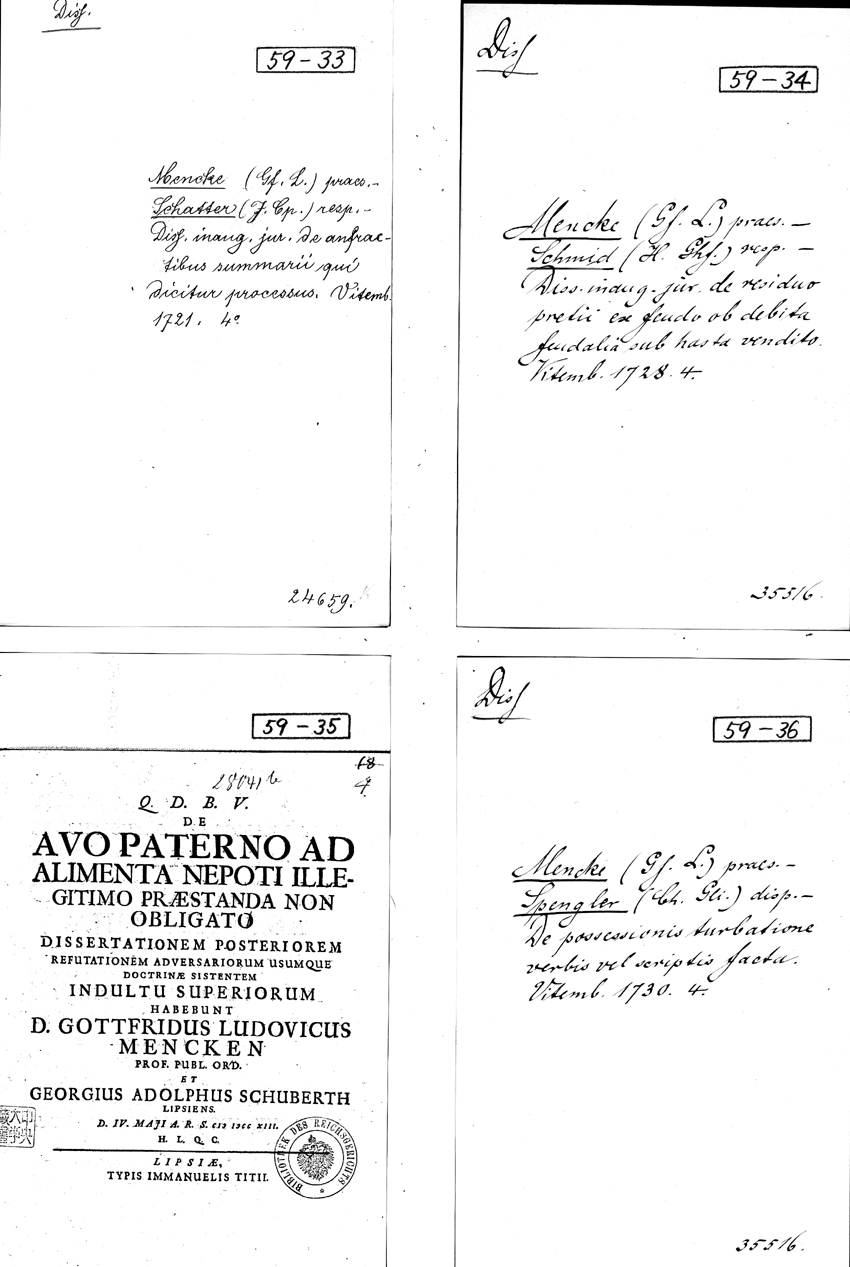 Diss.
59-33
Mencke (Gf. L.) praes.-
Schatter (J. Cp.) resp.-
Diss. inaug. jur. de anfrac-
tibus summarii qui
dicitur processus. Vitemb.
1721. 4º
24659.
Diss
59-34
Mencke (Gf. L.) praes.-
Schmid (H. Ghf.) resp.-
Diss. inaug. jur. de residuo
pretii ex feudo ob debita
feudalia sub hasta vendito.
Vitemb. 1728. 4.
35516.
59-35
68
4.
28041 b
Q. D. B. V.
DE
AVO PATERNO AD
ALIMENTA NEPOTI ILLE-
GITIMO PRÆSTANDA NON
OBLIGATO
DISSERTATIONEM POSTERIOREM
REFUTATIONEM ADVERSARIORUM USUMQUE
DOCTRINÆ SISTENTEM
INDULTU SUPERIORUM
HABEBUNT
D. GOTTFRIDUS LUDOVICUS
MENCKEN
PROF. PUBL. ORD.
ET
GEORGIUS ADOLPHUS SCHUBERTH
LIPSIENS.
D. IV. MAJI A. R. S. CIↃ IↃCC XIII.
H. L. Q. C.
LIPSIÆ,
TYPIS IMMANUELIS TITII.
BIBLIOTHEK DES REICHSGERICHTS
Diss
59-36
Mencke (Gf. L.) praes.-
Spengler (Ch. Gli.) disp.-
De possessionis turbatione
verbis vel scriptis facta.
Vitemb. 1730. 4.
35516.